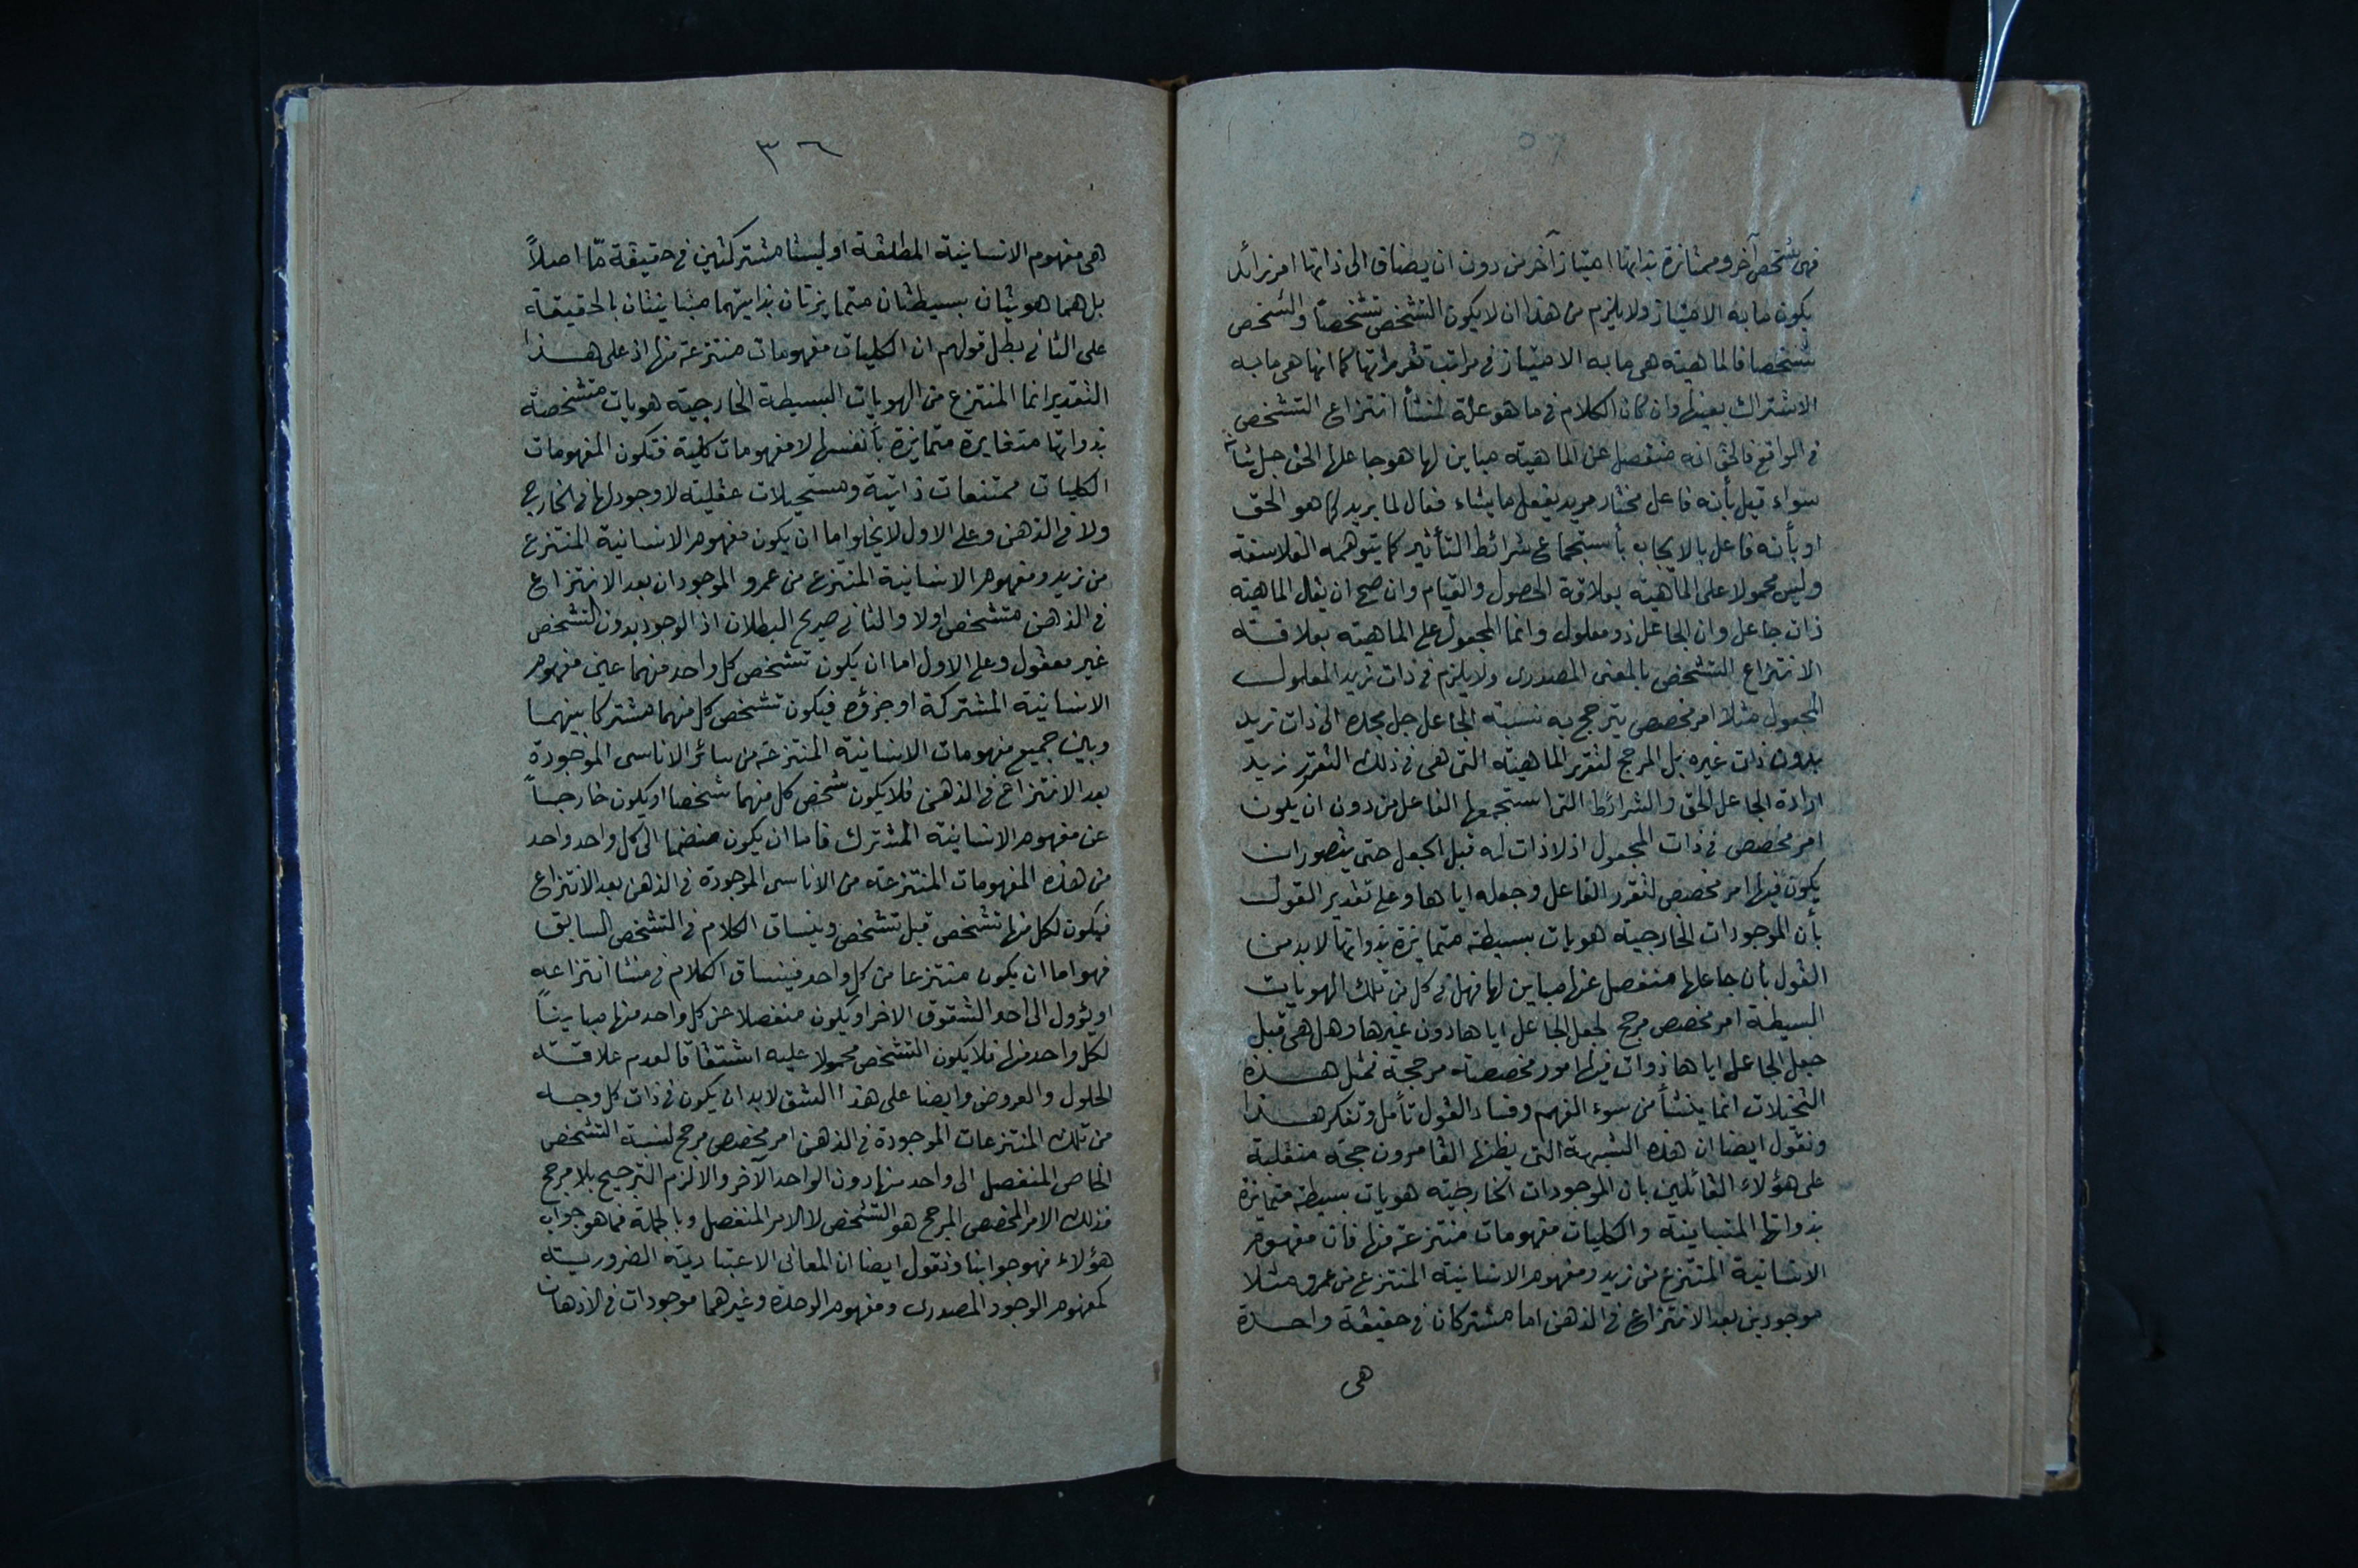 فهى شخص آخر وممتازة بذاتها امتياز آخر من دون ان يضاف الى ذاتها امر زائد
يكون مابه الامتياز ولا يلزم من هذا ان لا يكون التشخص تشخصا والشخص
شخصا فالماهية هى مابه الامتياز فى مراتب تقرراتها كما انها هى مابه
الاشتراك بعينها وان كان الكلام فى ما هو علة لمنشأ انتزاع التشخص
فى الواقع فالحق انه منفصل عن الماهية مباين لها هو جاعلها الحق جل شانه
سواء قيل بأنه فاعل مختار مريد يفعل ما يشاء فعال لما يريد كما هو الحق
او بأنه فاعل بالايجاب بأستجماع شرائط التأثير كما يتوهمه الفلاسفة
وليس محمولا على الماهية بعلاقة الحصول والقيام وان صح ان يقال الماهية
ذات جاعل وان الجاعل ذو معلول وانما المحمول على الماهية بعلاقة
الانتزاع التشخص بالمعنى المصدرى ولا يلزم فى ذات زيد المعلول
المجعول مثلا امر مخصص يترجح به نسبة الجاعل جل مجده الى ذات زيد
بدون ذات غيره بل المرجح لتقرر الماهية التى هى فى ذلك التقرر زيد
ارادة الجاعل الحق والشرائط التى استجمعها الفاعل من دون ان يكون
امر مخصص فى ذات المجعول اذ لا ذات له قبل الجعل حتى يتصور ان
يكون فيها امر مخصص لتقرر الفاعل وجعله اياها وعلى تقدير القول
بأن الموجودات الخارجية هويات بسيطة متمايزة بذواتها لا بد من
القول بأن جاعلها منفصل عنها مباين لها فهل فى كل من تلك الهويات
البسيطة امر مخصص مرجح لجعل الجاعل اياها دون غيرها وهل هى قبل
جعل الجاعل اياها ذوات فيها امور مخصصة مرجحة فمثل هذه
التخيلات انما ينشأ من سوء الفهم وفساد القول تأمل وتفكر هذا
ونقول ايضا ان هذه الشبهة التى يظنها القاصرون حجة منقلبة
على هؤلاء القائلين بان الموجودات الخارجية هويات بسيطة متمايزة
بذواتها المتباينة والكليات مفهومات منتزعة منها فان مفهوم
الانسانية المنتزع من زيد ومفهوم الانسانية المنتزع من عمرو مثلا
موجودين بعد الانتزاع فى الذهن اما مشتركان فى حقيقة واحدة
هى
٣٦
هى مفهوم الانسانية المطلقة او ليستا مشتركتين فى حقيقة مّا اصلاً
بل هما هويتان بسيطتان متمايزتان بذاتيهما متباينتان بالحقيقة
على الثانى بطل قولهم ان الكليات مفهومات منتزعة منها اذ على هذا
التقدير انما المنتزع من الهويات البسيطة الخارجية هويات متشخصة
بذواتها متغايرة متمايزة بأنفسها لا مفهومات كلية فتكون المفهومات
الكليات ممتنعات ذاتية ومستحيلات عقلية لا وجود لها فى الخارج
ولا فى الذهن وعلى الاول لا يخلو اما ان يكون مفهوم الانسانية المنتزع
من زيد ومفهوم الانسانية المنتزع من عمرو الموجودان بعد الانتزاع
فى الذهن متشخص اولا والثانى صريح البطلان اذ الوجود بدون التشخص
غير معقول وعلى الاول اما ان يكون تشخص كل واحد منهما عين مفهوم
الانسانية المشتركة او جزؤه فيكون تشخص كل منهما مشتركا بينهما
وبين جميع مفهومات الانسانية المنتزعة من سائر الاناسى الموجودة
بعد الانتزاع فى الذهن فلا يكون شخص كل منهما شخصا او يكون خارجاً
عن مفهوم الانسانية المشترك فاما ان يكون منضما الى كل واحد واحد
من هذه المفهومات المنتزعة من الاناسى الموجودة فى الذهن بعد الانتزاع
فيكون لكل منها تشخص قبل تشخص وينساق الكلام فى التشخص السابق
فهو اما ان يكون منتزعا من كل واحد فينساق الكلام فى منشا انتزاعه
او يؤول الى احد الشقوق الاخر او يكون منفصلا عن كل واحد منها مبايناً
لكل واحد منها فلا يكون التشخص محمولا عليه اشتقاقا لعدم علاقة
الحلول والعروض وايضا على هذا الشق لا بد ان يكون فى ذات كل وجه
من تلك المنتزعات الموجودة فى الذهن امر مخصص مرجح لنسبة التشخص
الخاص المنفصل الى واحد منها دون الواحد الآخر والا لزم الترجيح بلا مرجح
فذلك الامر المخصص المرجح هو التشخص لا الامر المنفصل وبالجملة فما هو جواب
هؤلاء فهو جوابنا ونقول ايضا ان المعانى الاعتبارية الضرورية
كمفهوم الوجود المصدرى ومفهوم الوحدة وغيرهما موجودات فى الاذهان